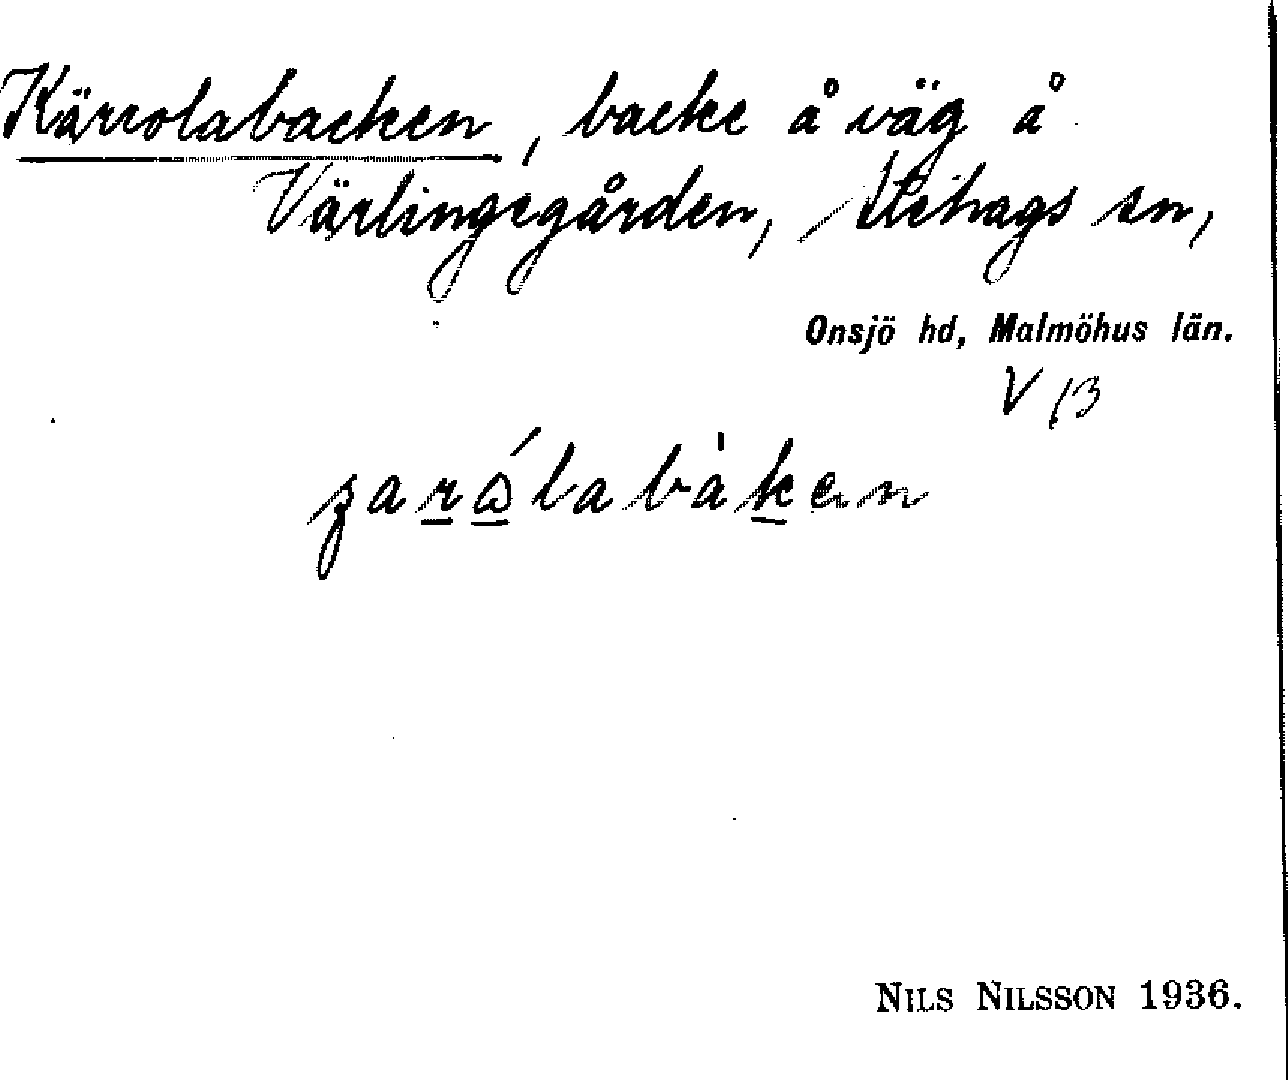 Kärrolabacken, backe å väg å
Värlingegården, Stehags sn,
Onsjö hd, Malmöhus län.
V 13
NILS NILSSON 1936.